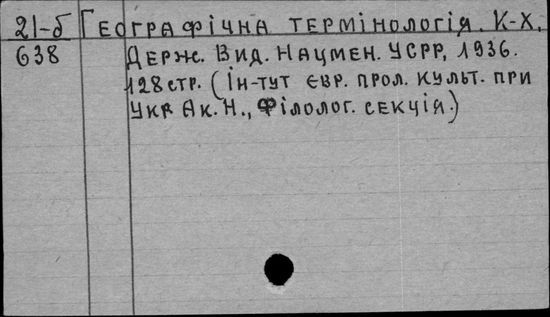 21-б Географічна термінологія. К-Х,
638 Держ. Вид. Нацмен. УСРР, 1936.
128 стр. (Ін-тут євр. прол. культ. при
Укр Ак. Н., Філолог. секція.)